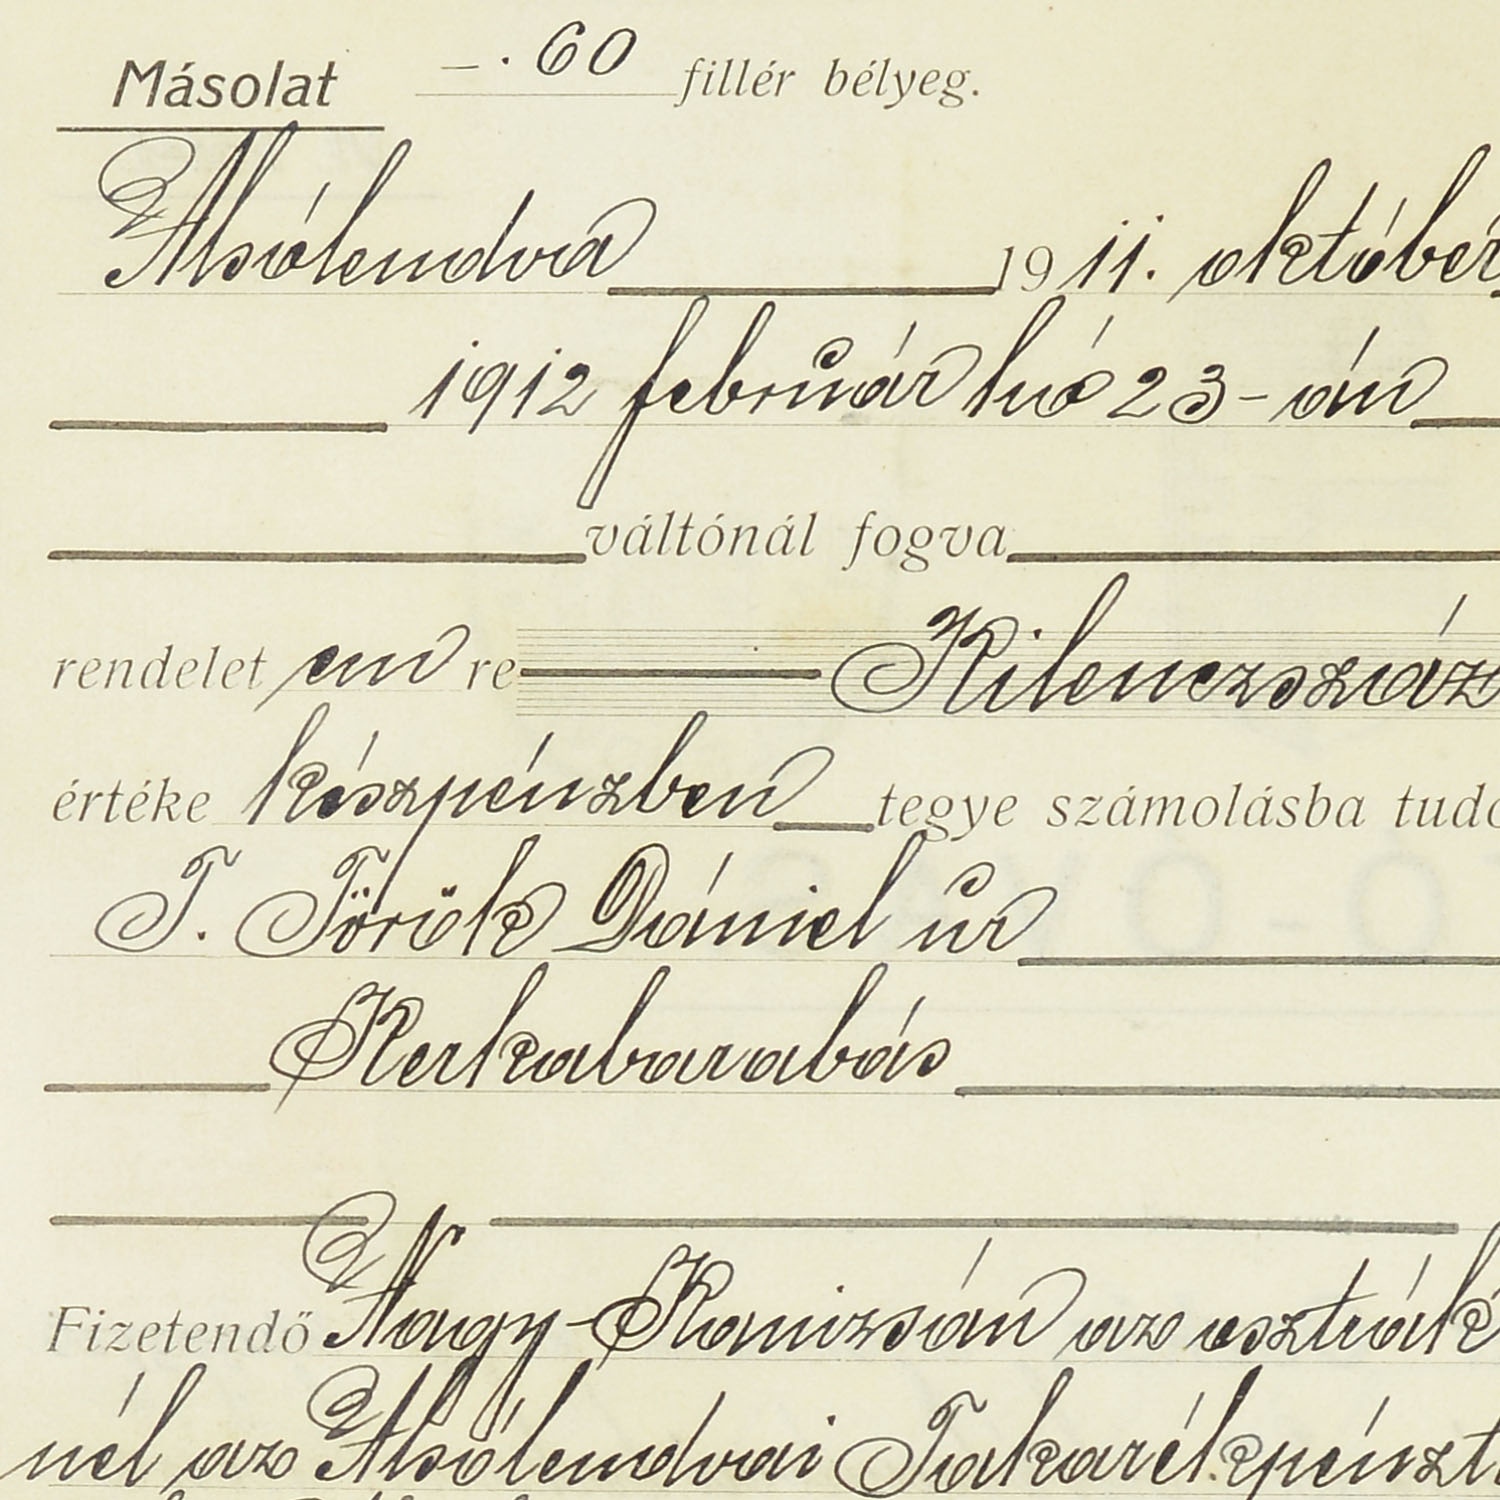 Másolat —.60 fillér bélyeg.
Alsólendva 1911. október
1912 február hó 23-án
váltónál fogva
rendelet em re Kilenczszáz
értéke készpénzben tegye számolásba tudó
T. Török Dániel úr
Kerkabarabás
Fizetendő Nagy-Kanizsán az osztrák
nél az Alsólendvai Takarékpénzt